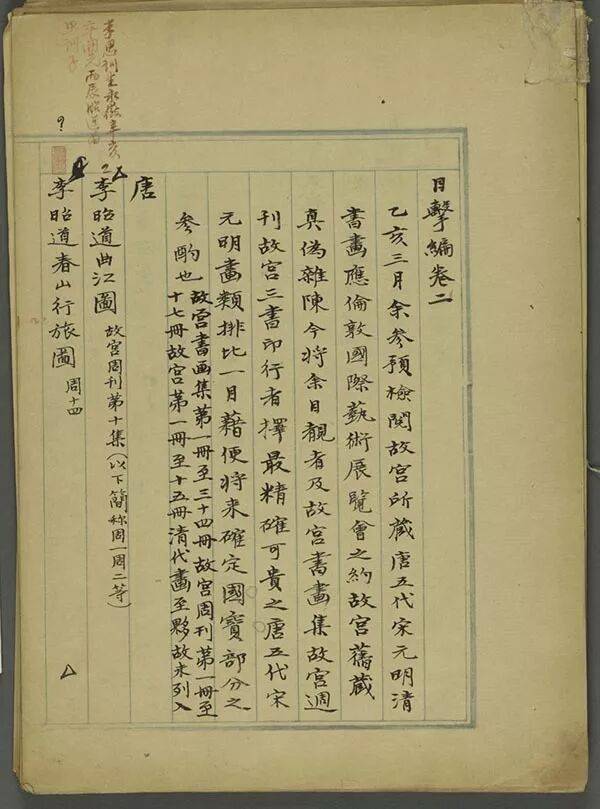 目擊編卷二
乙亥三月余參預檢閱故宮所藏唐五代宋元明清
書畫應倫敦國際藝術展覽會之約故宮舊藏
真偽雜陳今將余目覩者及故宮書畫集故宮週
刊故宮三書印行者擇最精確可貴之唐五代宋
元明畫類排比一目藉便將來確定國寶部分之
參酌也 故宮書画集第一冊至三十四冊故宮周刊第一冊至
十七冊故宮第一冊至十五冊清代畫至夥故未列入
唐
李昭道曲江圖 故宮周刊第十集(以下簡称周一周二等)
李昭道春山行旅圖 周十四
?
李思訓生永徽辛亥
卒開元丙辰